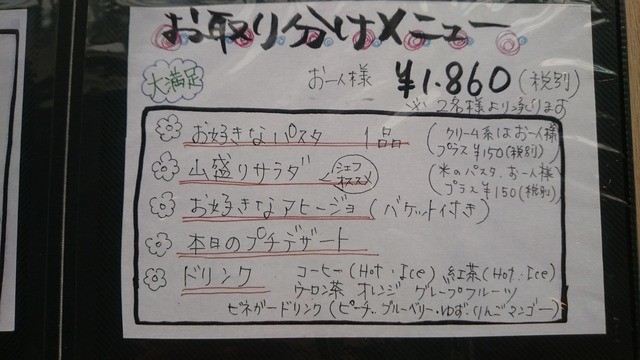 お取り分けメニュー
大満足
お一人様 ¥1.860(税別)
※2名様より承ります
お好きなパスタ 1品 (クリーム系はお一人様
プラス¥150(税別))
山盛りサラダ シェフ
オススメ (米のパスタ、お一人様
プラス¥150(税別))
お好きなアヒージョ(バケット付き)
本日のプチデザート
ドリンク コーヒー(Hot・Ice)、紅茶(Hot・Ice)
ウーロン茶 オレンジ グレープフルーツ
ビネガードリンク(ピーチ・ブルーベリー・ゆず・りんごマンゴー)